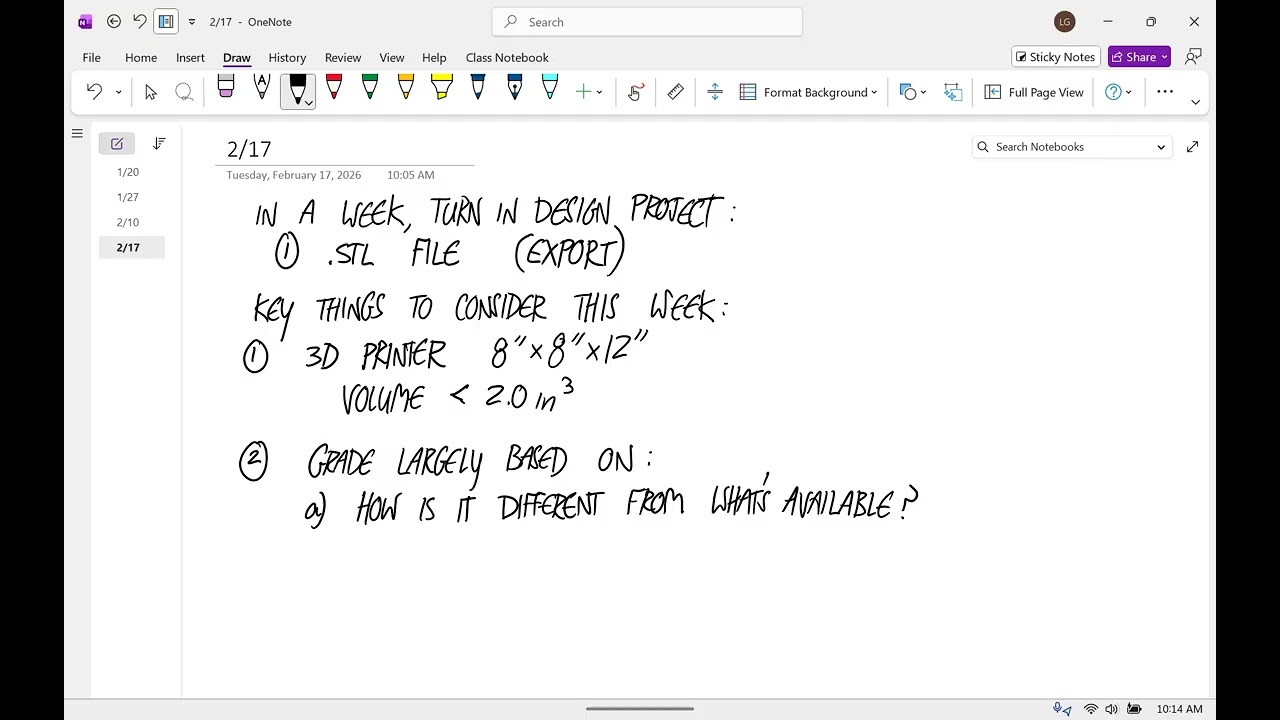 2/17 - OneNote
Search
LG
File Home Insert Draw History Review View Help Class Notebook
Sticky Notes
Share
A
Format Background
Full Page View
2/17
Search Notebooks
Tuesday, February 17, 2026 10:05 AM
1/20
1/27
2/10
2/17
IN A WEEK, TURN IN DESIGN PROJECT:
① .STL FILE (EXPORT)
KEY THINGS TO CONSIDER THIS WEEK:
① 3D PRINTER 8" × 8" × 12"
VOLUME < 2.0 in³
② GRADE LARGELY BASED ON:
a) HOW IS IT DIFFERENT FROM WHAT'S AVAILABLE?
10:14 AM